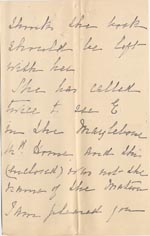 think the book
should be left
with her
She has called
twice to see E
in the Marylebone
Rd Home. And this
(enclosed) was not the
name of the Matron
I am pleased you